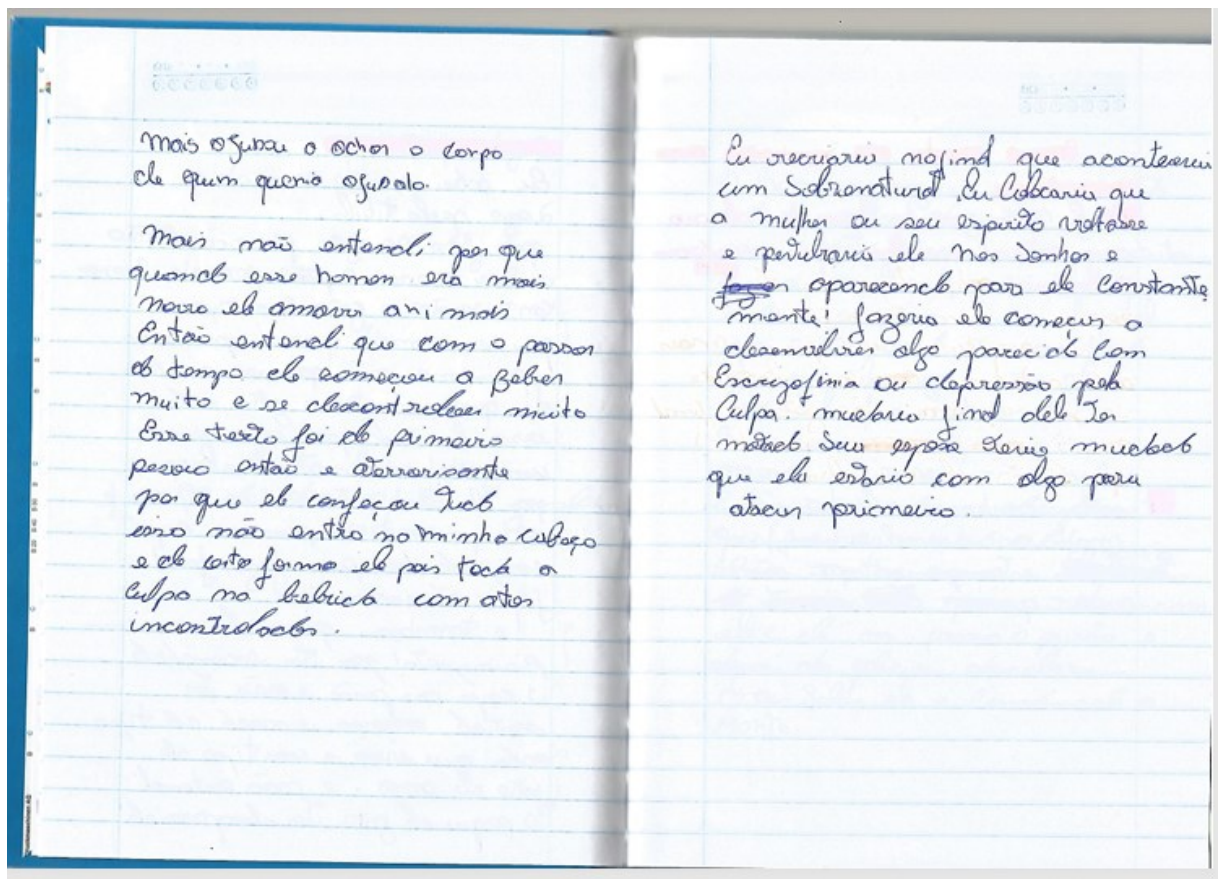 mais ajudou o achar o corpo
de quem queria ajudalo.
Mais não entendi por que
quando esse homem era mais
novo ele amava animais
Então entendi que com o passar
do tempo ele começou a Beber
muito e se descontrolar muito
Esse texto foi de primeiro
pessoa então e aterrorizante
por que ele confeçou tudo
isso não entra na minha cabeça
e de certa forma ele pois toda a
culpa na bebida com atos
incontrolados.
Eu recriaria no final que aconteceria
um Sobrenatural. Eu Colocaria que
a mulher ou seu espirito voltasse
e pertubraria ele nos Sonhos e
aparecendo para ele Constante
mente! fazeria ele começar a
desenvolver algo parecido Com
Escrizofinia ou depressão pela
Culpa. mudaria final dele ter
matado Sua esposa teria mudado
que ela estaria com algo para
atacar primeiro.